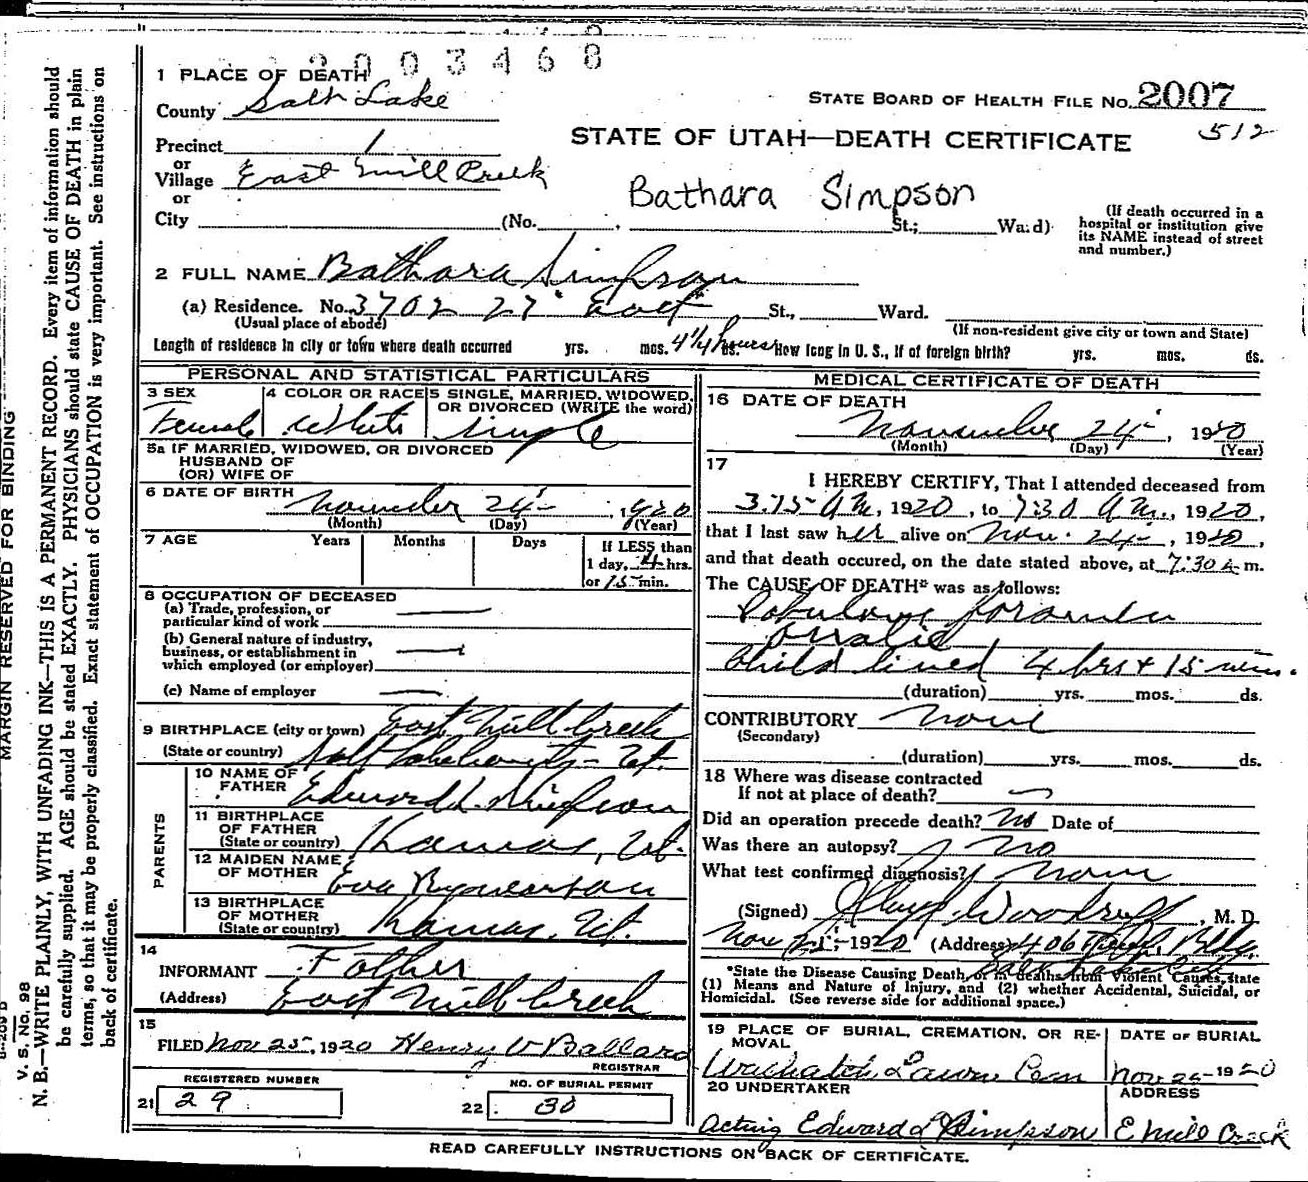 2003468
1 PLACE OF DEATH
County Salt Lake
STATE BOARD OF HEALTH FILE No. 2007
512
Precinct 1
STATE OF UTAH—DEATH CERTIFICATE
or
Village East Mill Creek
or
Bathara Simpson
City (No. , St.; Ward)
(If death occurred in a
hospital or institution give
its NAME instead of street
and number.)
2 FULL NAME Bathara Simpson
(a) Residence. No. 3702 27" East St., Ward.
(Usual place of abode)
(If non-resident give city or town and State)
Length of residence in city or town where death occurred yrs. mos. 4 1/4 hours ds. How long in U. S., if of foreign birth? yrs. mos. ds.
PERSONAL AND STATISTICAL PARTICULARS
3 SEX
Female
4 COLOR OR RACE
White
5 SINGLE, MARRIED, WIDOWED,
OR DIVORCED (WRITE the word)
Single
5a IF MARRIED, WIDOWED, OR DIVORCED
HUSBAND OF
(OR) WIFE OF
6 DATE OF BIRTH
November 24 , 1920
(Month) (Day) (Year)
7 AGE Years Months Days
If LESS than
1 day, 4 hrs.
or 15 min.
8 OCCUPATION OF DECEASED
(a) Trade, profession, or
particular kind of work
(b) General nature of industry,
business, or establishment in
which employed (or employer)
(c) Name of employer
9 BIRTHPLACE (city or town) East Mill Creek
(State or country) Salt Lake County - Ut.
PARENTS
10 NAME OF
FATHER Edward L. Simpson
11 BIRTHPLACE
OF FATHER
(State or country) Kamas, Ut.
12 MAIDEN NAME
OF MOTHER Eva
13 BIRTHPLACE
OF MOTHER
(State or country) Kamas, Ut.
14
INFORMANT Father
(Address) East Mill Creek
15
FILED Nov 25, 1920 Henry V Ballard
REGISTRAR
REGISTERED NUMBER
21 29
NO. OF BURIAL PERMIT
22 30
MEDICAL CERTIFICATE OF DEATH
16 DATE OF DEATH
November 24 , 1920
(Month) (Day) (Year)
17
I HEREBY CERTIFY, That I attended deceased from
3:15 A M, 1920, to 7:30 A M., 1920,
that I last saw her alive on Nov. 24, 1920,
and that death occured, on the date stated above, at 7:30 A m.
The CAUSE OF DEATH* was as follows:
foramen
ovalie
Child lived 4 hrs + 15 min.
(duration) yrs. mos. ds.
CONTRIBUTORY None
(Secondary)
(duration) yrs. mos. ds.
18 Where was disease contracted
If not at place of death?
Did an operation precede death? No Date of
Was there an autopsy? No
What test confirmed diagnosis? None
(Signed) Woodruff, M. D.
Nov 1920 (Address) 406 Bldg.
Salt Lake City
*State the Disease Causing Death, or in deaths from Violent Causes, state
(1) Means and Nature of Injury, and (2) whether Accidental, Suicidal, or
Homicidal. (See reverse side for additional space.)
19 PLACE OF BURIAL, CREMATION, OR RE-
MOVAL
Wachatch Lawn Cem
DATE OF BURIAL
Nov 1920
20 UNDERTAKER
Acting Edward L Simpson
ADDRESS
E Mill Creek
READ CAREFULLY INSTRUCTIONS ON BACK OF CERTIFICATE.
MARGIN RESERVED FOR BINDING
V. S. No. 98
N. B.—WRITE PLAINLY, WITH UNFADING INK—THIS IS A PERMANENT RECORD. Every item of information should
be carefully supplied. AGE should be stated EXACTLY. PHYSICIANS should state CAUSE OF DEATH in plain
terms, so that it may be properly classified. Exact statement of OCCUPATION is very important. See instructions on
back of certificate.